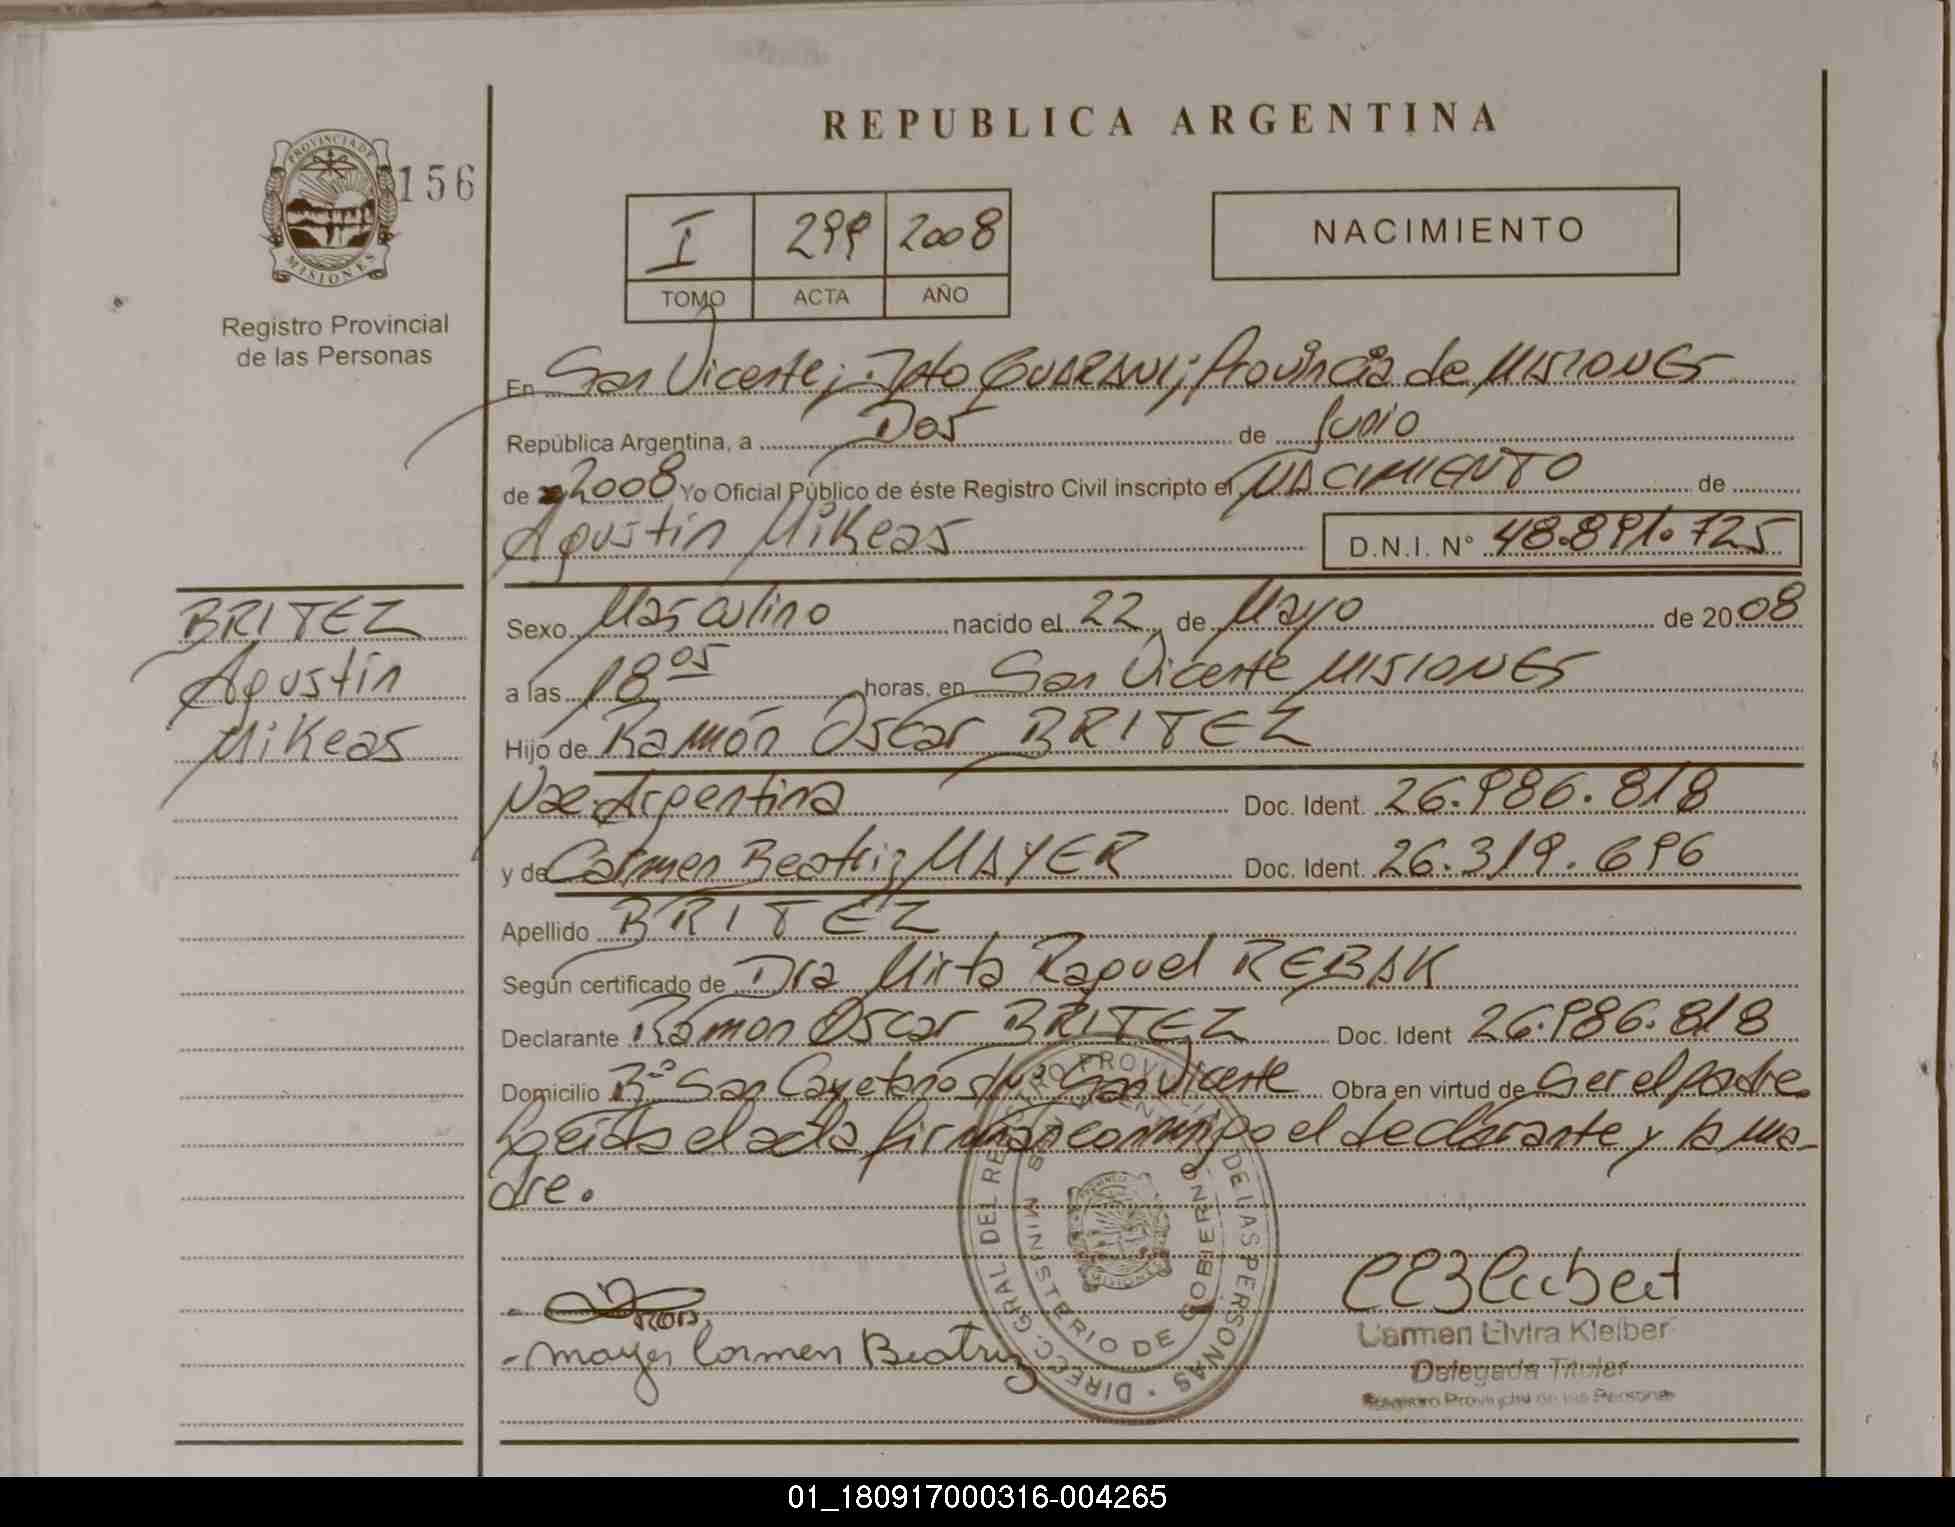 REPUBLICA ARGENTINA
PROVINCIA DE
MISIONES
156
Registro Provincial
de las Personas
I 299 2008
TOMO ACTA AÑO
NACIMIENTO
En San Vicente; Dpto GUARANI; Provincia de MISIONES
República Argentina, a Dos de Junio
de 2008 Yo Oficial Público de éste Registro Civil inscripto el NACIMIENTO de
Agustín Mikeas D.N.I. N° 48.891.725
BRITEZ
Agustín
Mikeas
Sexo Masculino nacido el 22 de Mayo de 2008
a las 18 05 horas, en San Vicente MISIONES
Hijo de Ramón Oscar BRITEZ
Nac. Argentina Doc. Ident. 26.986.818
y de Carmen Beatriz MAYER Doc. Ident. 26.319.696
Apellido BRITEZ
Según certificado de Dra Mirta Raquel REBAK
Declarante Ramón Oscar BRITEZ Doc. Ident 26.986.818
Domicilio B° San Cayetano s/n° San Vicente Obra en virtud de Ser el padre
Leída el acta firman conmigo el declarante y la ma-
dre.
DIRECC. GRAL DEL REGISTRO PROVINCIAL DE LAS PERSONAS
MINISTERIO DE GOBIERNO
MISIONES
- Mayer Carmen Beatriz
Carmen Elvira Kleiber
Delegada Titular
Registro Provincial de las Personas
01_180917000316-004265